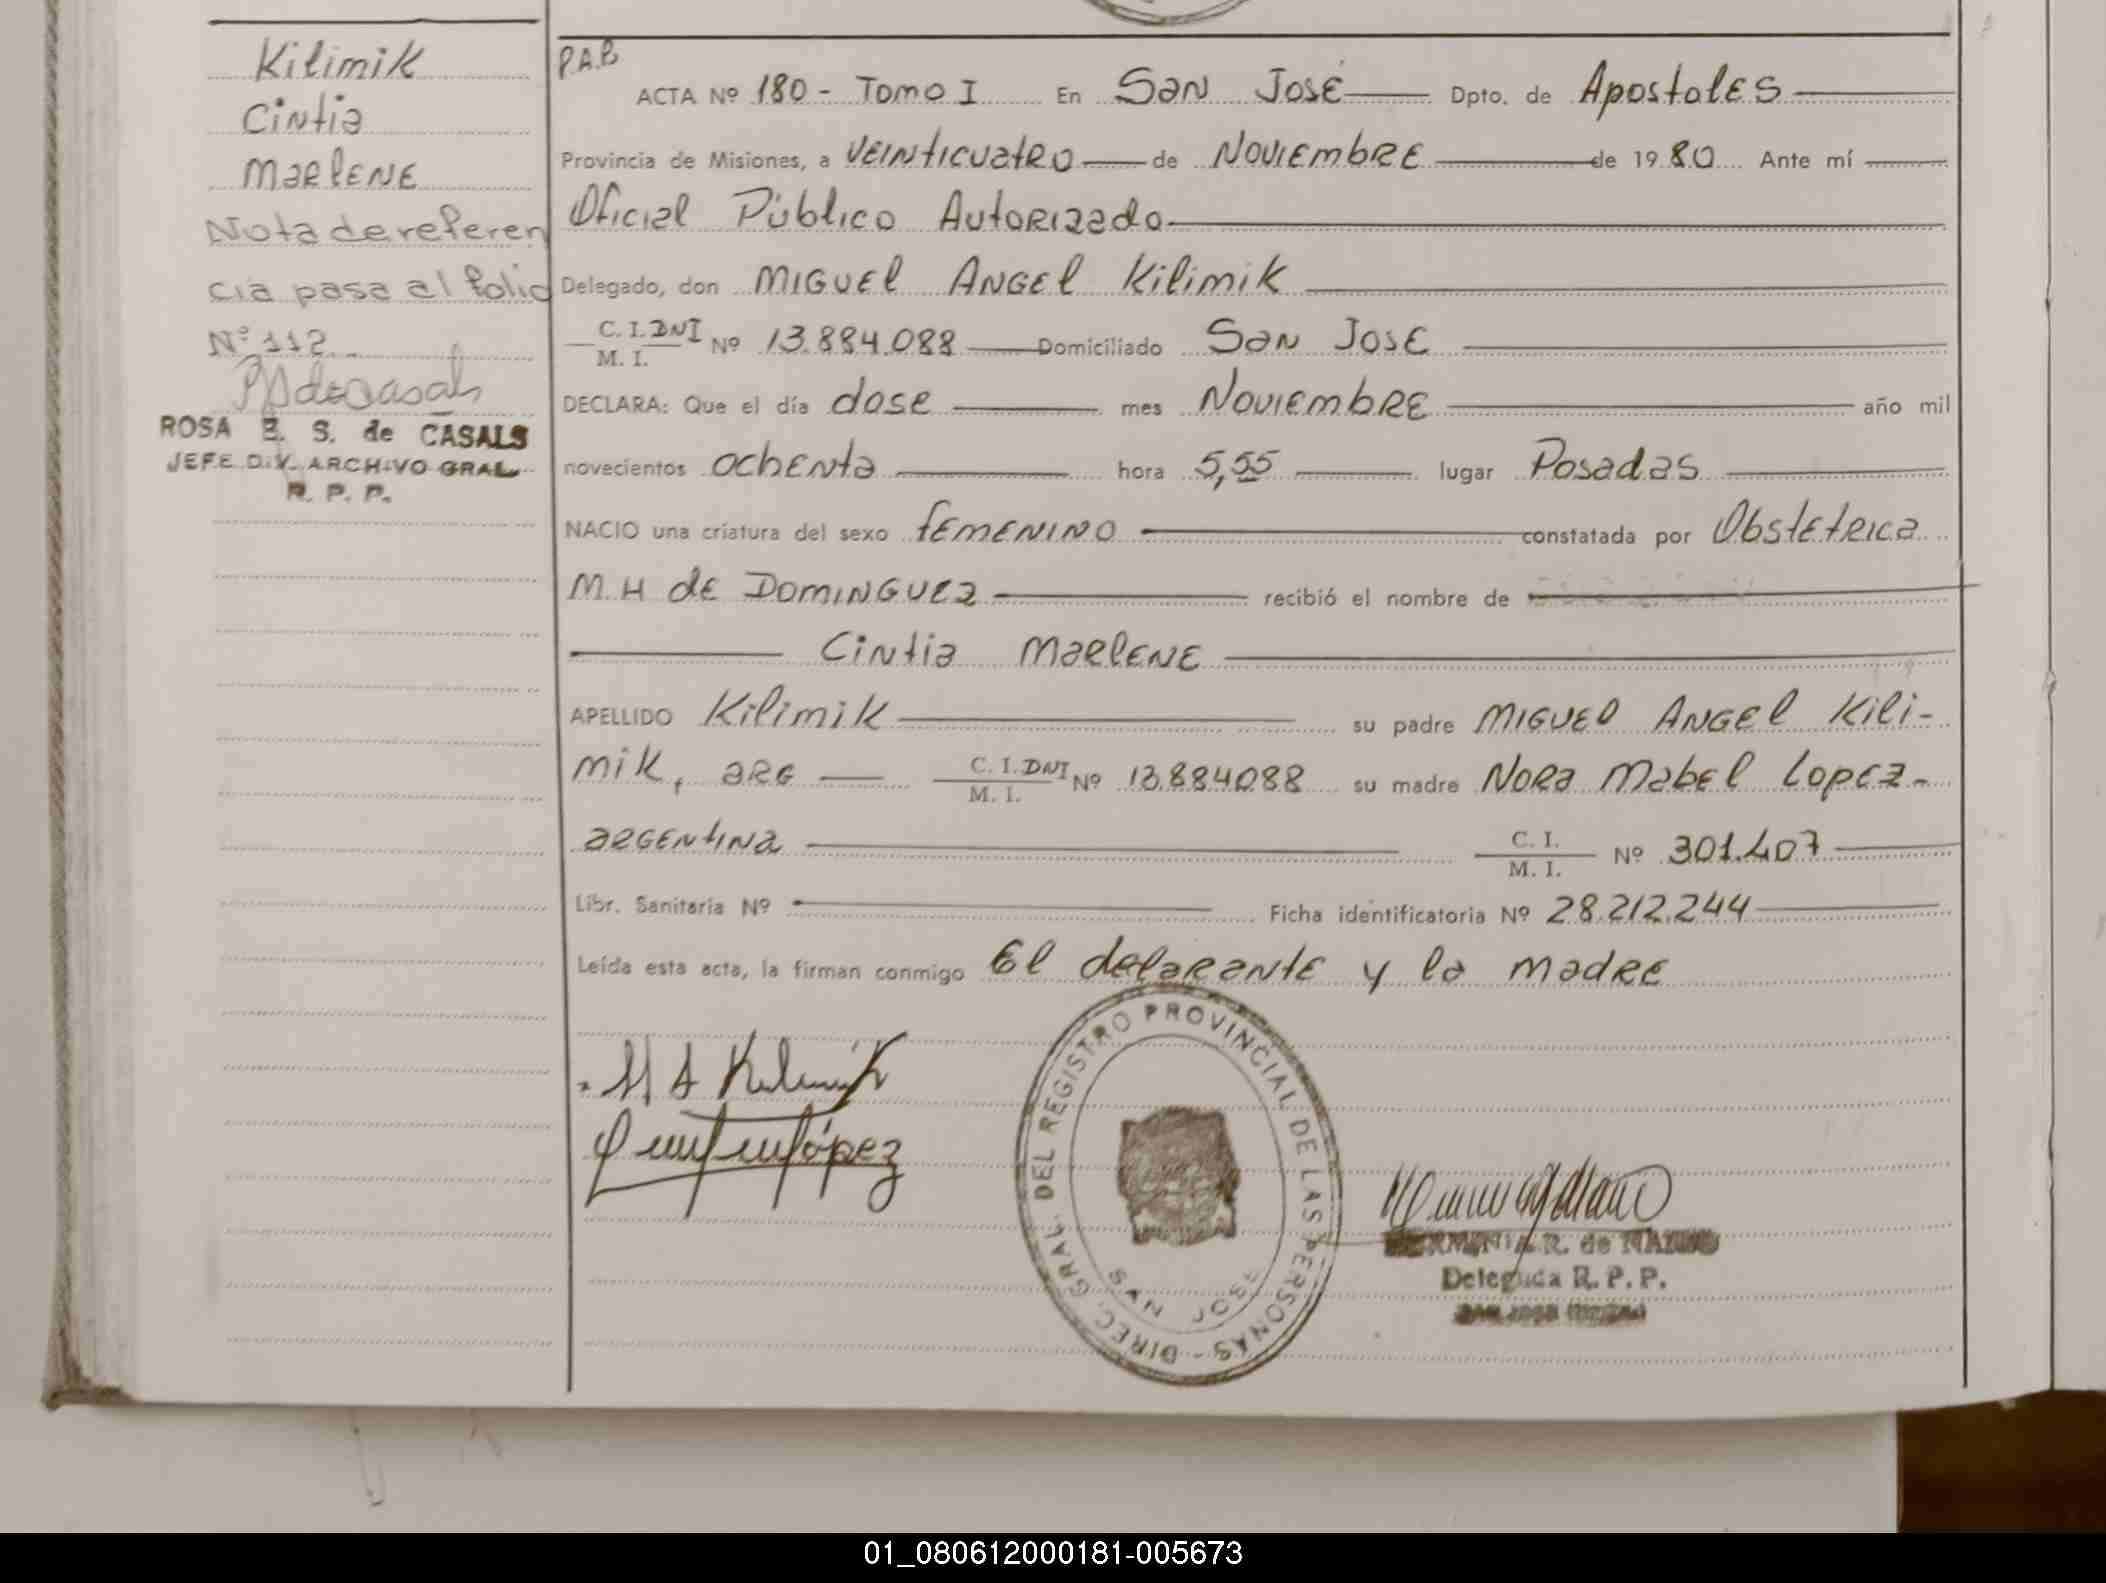 Kilimik
Cintia
Marlene
Nota de referen
cia pasa al folio
Nº 112
ROSA E. S. de CASALS
JEFE DIV. ARCHIVO GRAL.
R. P. P.
P.A.B
ACTA Nº 180 - Tomo I En San José Dpto. de Apostoles
Provincia de Misiones, a Veinticuatro de Noviembre de 1980 Ante mí
Oficial Público Autorizado
Delegado, don Miguel Angel Kilimik
C. I. DNI
M. I.
Nº 13.884.088 Domiciliado San Jose
DECLARA: Que el día dose mes Noviembre año mil
novecientos ochenta hora 5,55 lugar Posadas
NACIO una criatura del sexo femenino constatada por Obstetrica
M. H de Dominguez recibió el nombre de
Cintia Marlene
APELLIDO Kilimik su padre Miguel Angel Kili-
mik, arg C. I. DNI
M. I.
Nº 13.884088 su madre Nora Mabel Lopez-
argentina C. I.
M. I.
Nº 301.407
Libr. Sanitaria Nº Ficha identificatoria Nº 28.212.244
Leída esta acta, la firman conmigo El delarante y la madre
M A Kilimik
López
DIREC. GRAL. DEL REGISTRO PROVINCIAL DE LAS PERSONAS -
SAN JOSE
R. de
Delegada R. P. P.
01_080612000181-005673